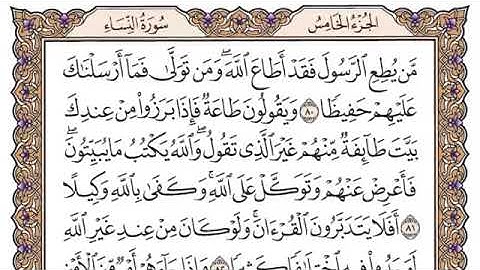 الجُزْءُ الخَامِسُ سُورَةُ النِّسَاءِ
مَّن يُطِعِ ٱلرَّسُولَ فَقَدْ أَطَاعَ ٱللَّهَۖ وَمَن تَوَلَّىٰ فَمَآ أَرْسَلْنَٰكَ
عَلَيْهِمْ حَفِيظًا ٨٠ وَيَقُولُونَ طَاعَةٌ فَإِذَا بَرَزُوا۟ مِنْ عِندِكَ
بَيَّتَ طَآئِفَةٌ مِّنْهُمْ غَيْرَ ٱلَّذِى تَقُولُۖ وَٱللَّهُ يَكْتُبُ مَا يُبَيِّتُونَۖ
فَأَعْرِضْ عَنْهُمْ وَتَوَكَّلْ عَلَى ٱللَّهِۚ وَكَفَىٰ بِٱللَّهِ وَكِيلًا
٨١ أَفَلَا يَتَدَبَّرُونَ ٱلْقُرْءَانَۚ وَلَوْ كَانَ مِنْ عِندِ غَيْرِ ٱللَّهِ